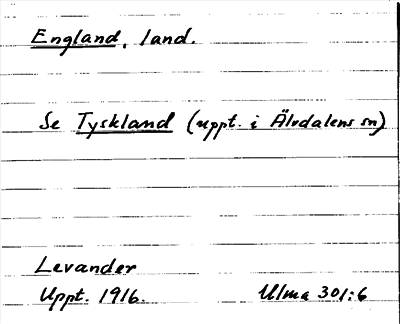 England, land.
Se Tyskland (uppt. i Älvdalens sn)
Levander
Uppt. 1916. Ulma 301:6